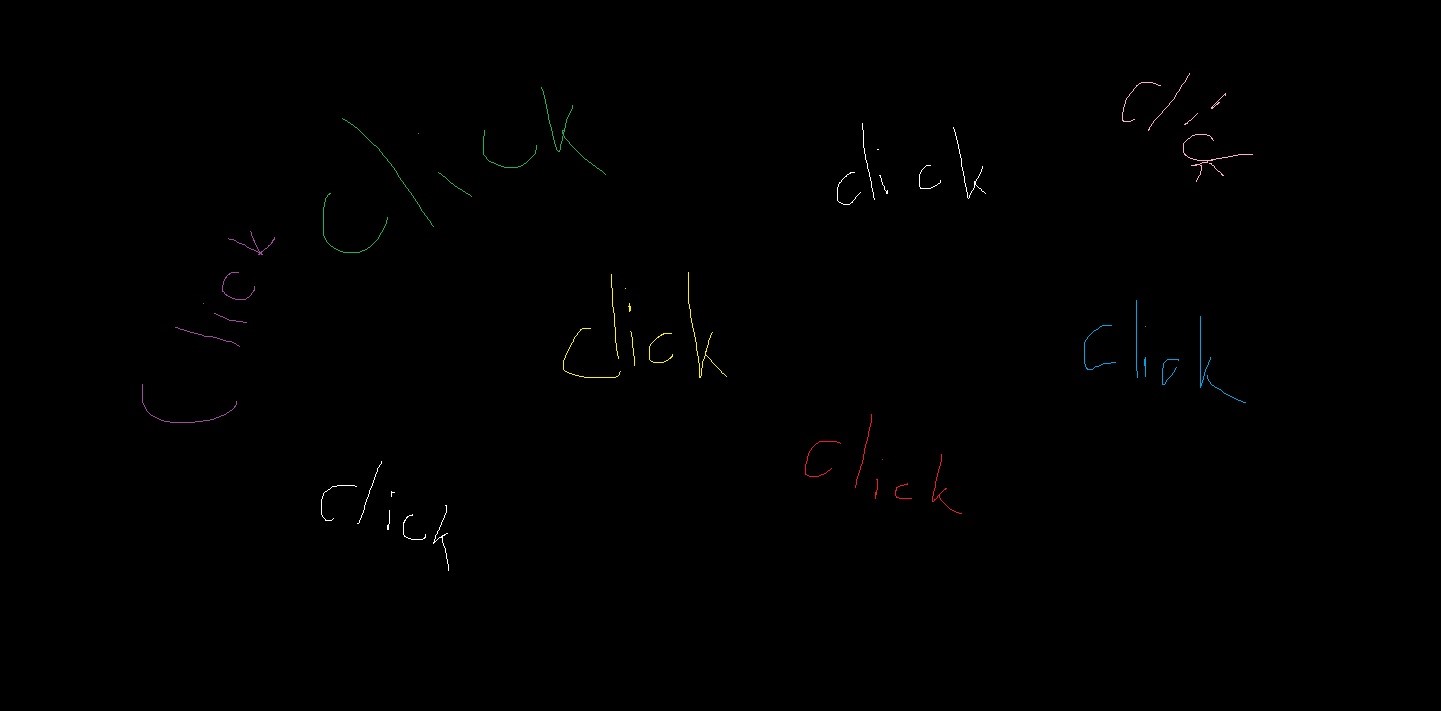 click
click
click
click
click
click
click
click